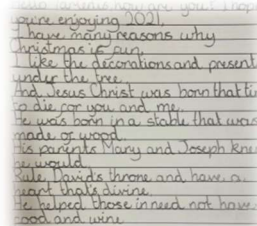 you're enjoying 2021.
I have many reasons why
Christmas is fun.
I like the decorations and present
under the tree.
And Jesus Christ was born that ti
to die for you and me.
He was born in a stable that was
made of wood.
His parents Mary and Joseph kne
he would
Rule, David's throne and, have a
heart that's divine.
He helped those in need not have
food and wine